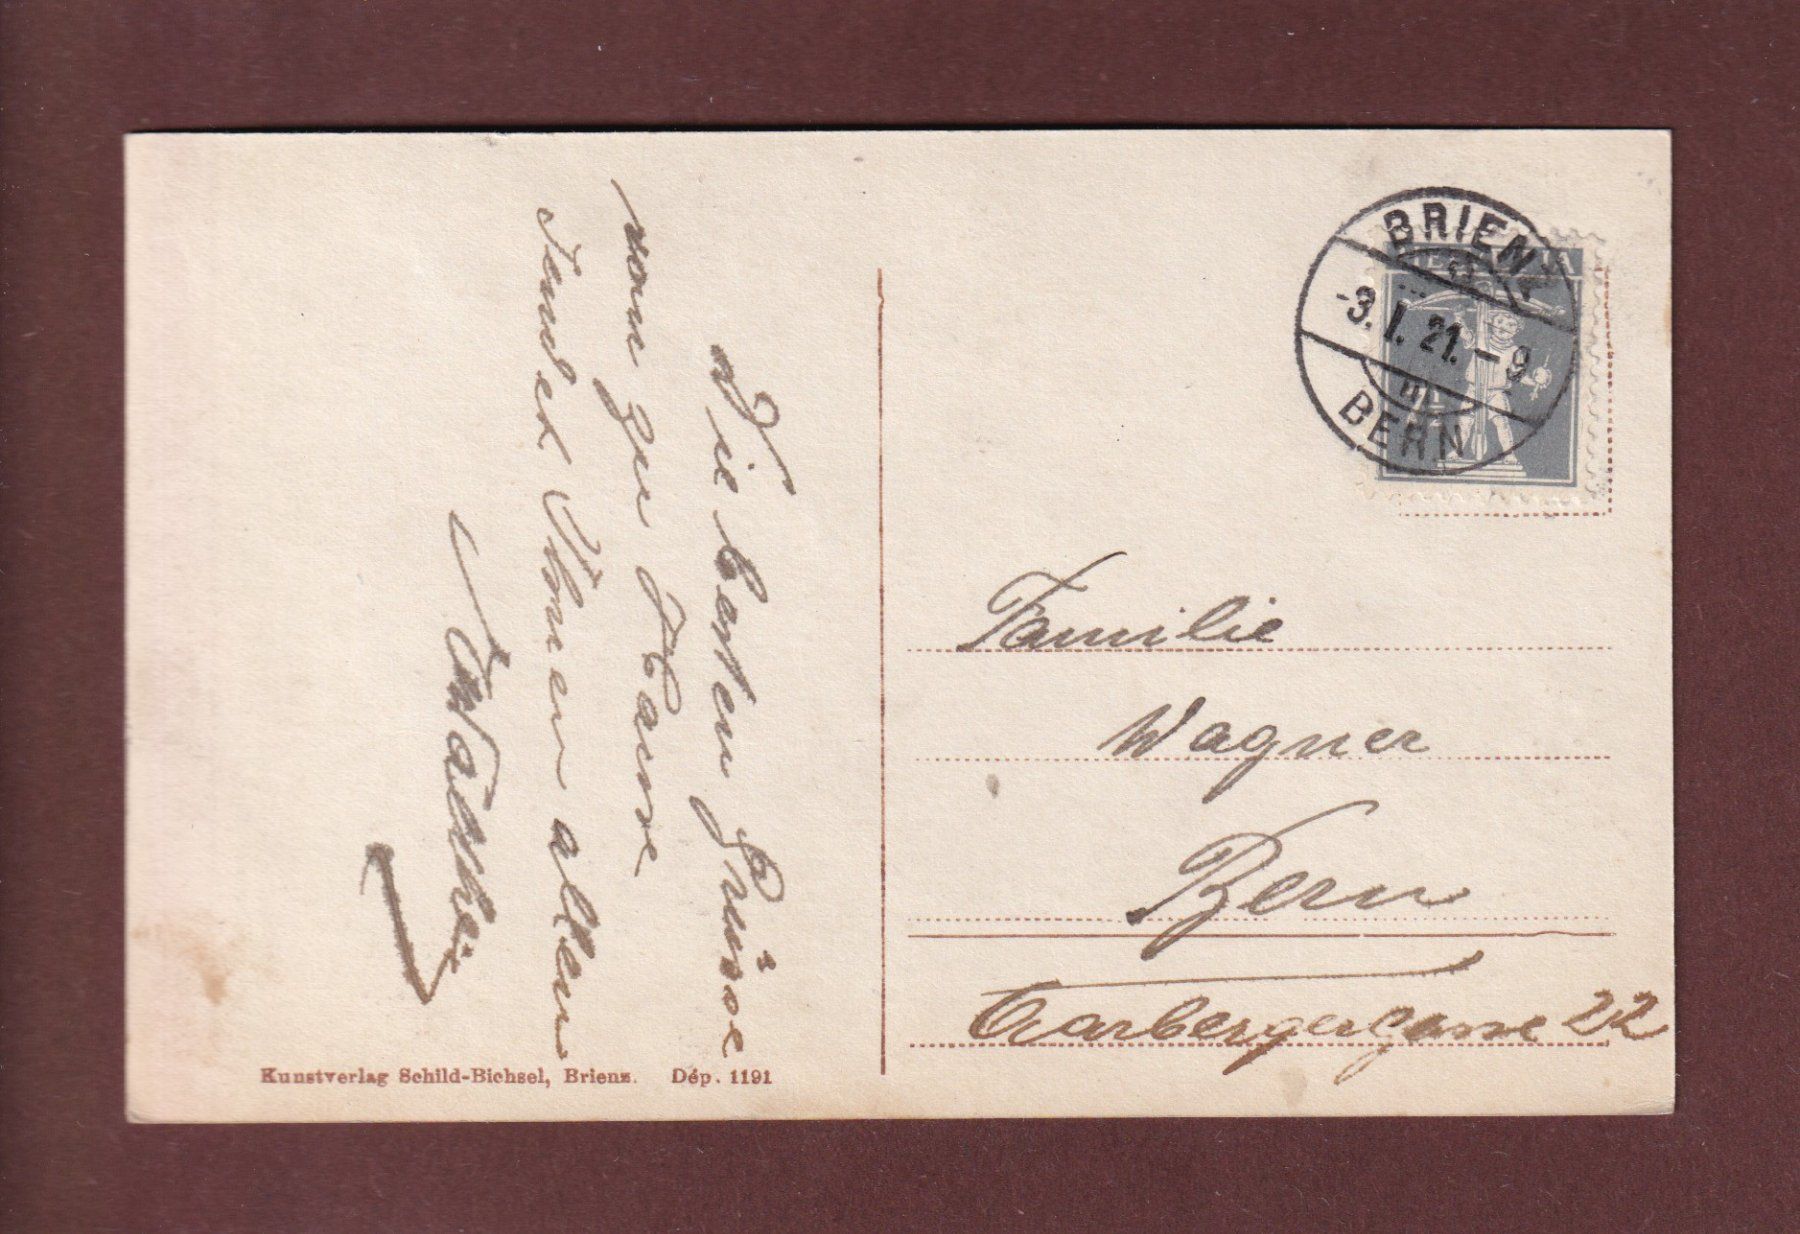 Die besten Grüsse
von zu Hause
sendet Ihnen allen
Familie
Wagner
Bern
Aarbergergasse 22
BRIENZ
-3. I. 21. - 9
BERN
HELVETIA
Kunstverlag Schild-Bichsel, Brienz. Dép. 1191